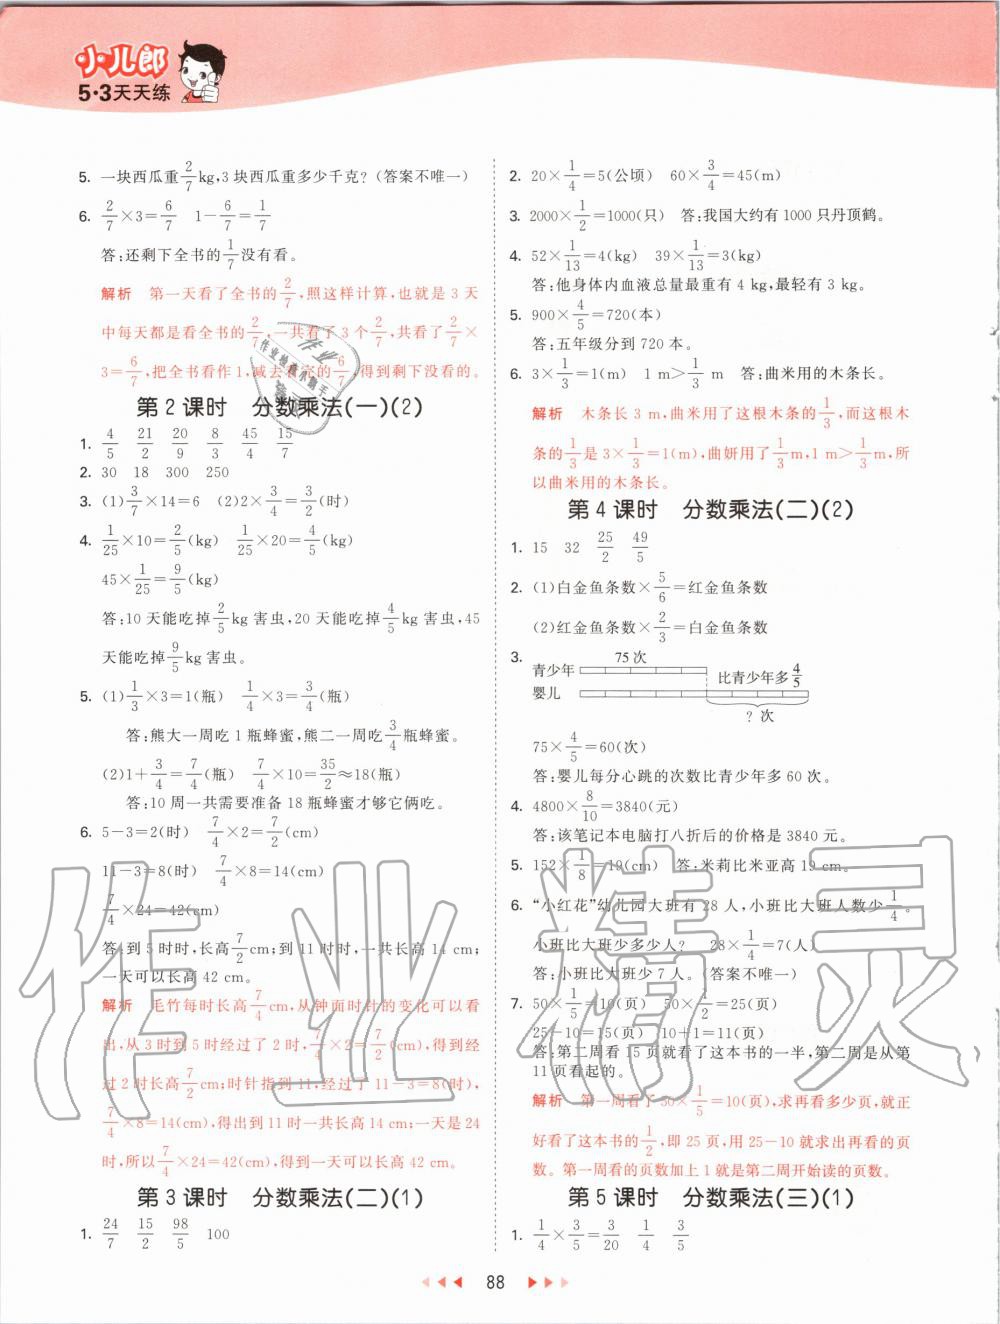 小儿郎
5·3天天练
5. 一块西瓜重2/7kg,3块西瓜重多少千克?(答案不唯一)
6. 2/7×3=6/7  1-6/7=1/7
答:还剩下全书的1/7没有看。
解析 第一天看了全书的2/7,照这样计算,也就是3天
中每天都是看全书的2/7,一共看了3个2/7,共看了2/7×
3=6/7,把全书看作1,减去看完的6/7,得到剩下没看的。
第2课时 分数乘法(一)(2)
1. 4/5  21/2  20/9  8/3  45/4  15/7
2. 30  18  300  250
3. (1)3/7×14=6  (2)2×3/4=3/2(时)
4. 1/25×10=2/5(kg)  1/25×20=4/5(kg)
45×1/25=9/5(kg)
答:10天能吃掉2/5kg害虫,20天能吃掉4/5kg害虫,45
天能吃掉9/5kg害虫。
5. (1)1/3×3=1(瓶)  1/4×3=3/4(瓶)
答:熊大一周吃1瓶蜂蜜,熊二一周吃3/4瓶蜂蜜。
(2)1+3/4=7/4(瓶)  7/4×10=35/2≈18(瓶)
答:10周一共需要准备18瓶蜂蜜才够它俩吃。
6. 5-3=2(时)  7/4×2=7/2(cm)
11-3=8(时)  7/4×8=14(cm)
7/4×24=42(cm)
答:到5时时,长高7/2cm;到11时时,共长高14cm;
一天可以长高42cm。
解析 毛竹每时长高7/4cm,从钟面时针的变化可以看
出,从3时到5时经过了2时,7/4×2=7/2(cm),得到经
过2时长高7/2cm;时针指到11时,经过了11-3=8(时),
7/4×8=14(cm),得出到11时一共长高14cm;一天是24
时,所以7/4×24=42(cm),得到一天可以长高42cm。
第3课时 分数乘法(二)(1)
1. 24/7  15/2  98/5  100
2. 20×1/4=5(公顷)  60×3/4=45(m)
3. 2000×1/2=1000(只)  答:我国大约有1000只丹顶鹤。
4. 52×1/13=4(kg)  39×1/13=3(kg)
答:他身体内血液总量最重有4kg,最轻有3kg。
5. 900×4/5=720(本)
答:五年级分到720本。
6. 3×1/3=1(m)  1m>1/3m  答:曲米用的木条长。
解析 木条长3m,曲米用了这根木条的1/3,而这根木
条的1/3是3×1/3=1(m),曲妍用了1/3m,1m>1/3m,所
以曲米用的木条长。
第4课时 分数乘法(二)(2)
1. 15  32  25/2  49/5
2. (1)白金鱼条数×5/6=红金鱼条数
(2)红金鱼条数×2/3=白金鱼条数
3.
75次
青少年
比青少年多4/5
婴儿
?次
75×4/5=60(次)
答:婴儿每分心跳的次数比青少年多60次。
4. 4800×8/10=3840(元)
答:该笔记本电脑打八折后的价格是3840元。
5. 152×1/8=19(cm)  答:米莉比米亚高19cm。
6. “小红花”幼儿园大班有28人,小班比大班人数少1/4。
小班比大班少多少人?  28×1/4=7(人)
答:小班比大班少7人。(答案不唯一)
7. 50×1/5=10(页)  50×1/2=25(页)
25-10=15(页)  10+1=11(页)
答:第二周看15页就看了这本书的一半,第二周是从第
11页看起的。
解析 第一周看了50×1/5=10(页),求再看多少页,就正
好看了这本书的1/2,即25页,用25-10就求出再看的页
数。第一周看的页数加上1就是第二周开始读的页数。
第5课时 分数乘法(三)(1)
1. 1/4×3/5=3/20  1/4  3/5
88
作业精灵
作业
作业检查小助手